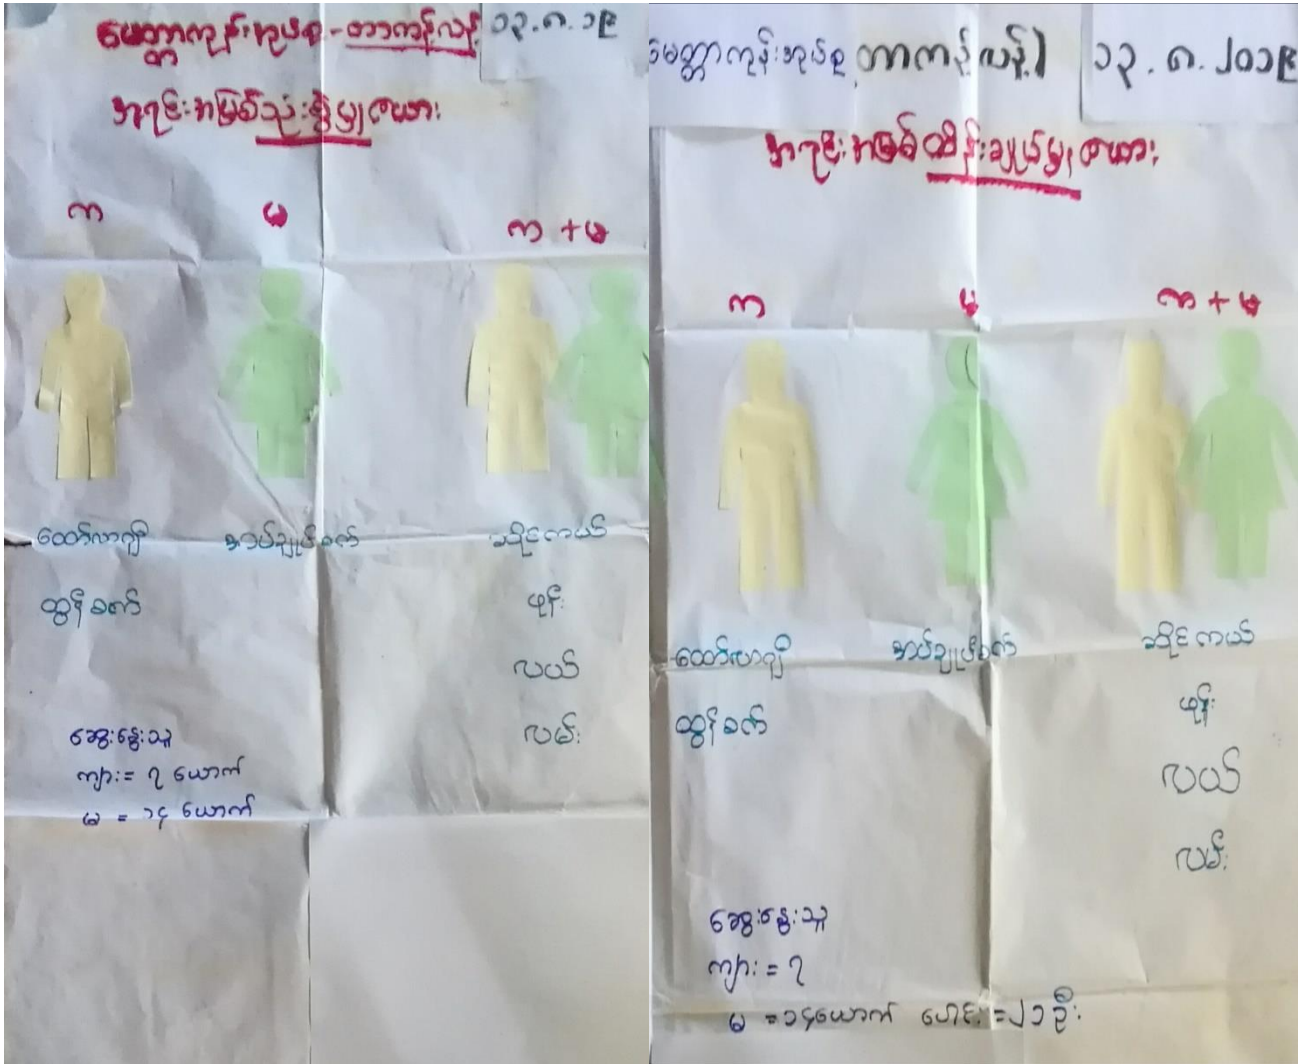 မေတ္တာကုန်းအုပ်စု - တာကန့်လန့် ၁၃.၈.၁၉
အရင်းအမြစ်သုံးစွဲမှုဇယား
က မ က + မ
ထော်လာဂျီ အပ်ချုပ်စက် ဆိုင်ကယ်
ထွန်စက် ဖုန်း
လယ်
လမ်း
ဆွေးနွေးသူ
ကျား = ၇ ယောက်
မ = ၁၄ ယောက်
မေတ္တာကုန်းအုပ်စု တာကန့်လန့်) ၁၃.၈.၂၀၁၉
အရင်းအမြစ်ထိန်းချုပ်မှုဇယား
က မ က + မ
ထော်လာဂျီ အပ်ချုပ်စက် ဆိုင်ကယ်
ထွန်စက် ဖုန်း
လယ်
လမ်း
ဆွေးနွေးသူ
ကျား = ၇
မ = ၁၄ယောက် ပေါင်း = ၂၁ဦး